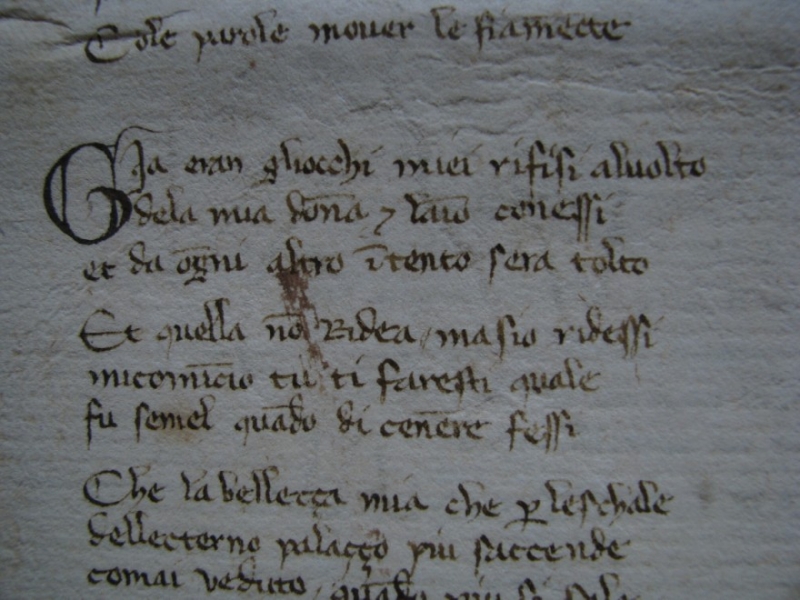 Tole parole mover le fiam̄ecte
Gia eran gliocchi miei rifisi alvolto
dela mia don̄a ⁊ laīo con essi
et da oḡni altro ītento sera tolto
Et quella nō Ridea, ma sio ridessi
mi comīcio tu ti faresti quale
fu semel quādo di cen̄ere fessi
Che la bellecça mia che ꝑ leschale
dellecterno palacço piu saccende
comai veduto, quādo piu si sale